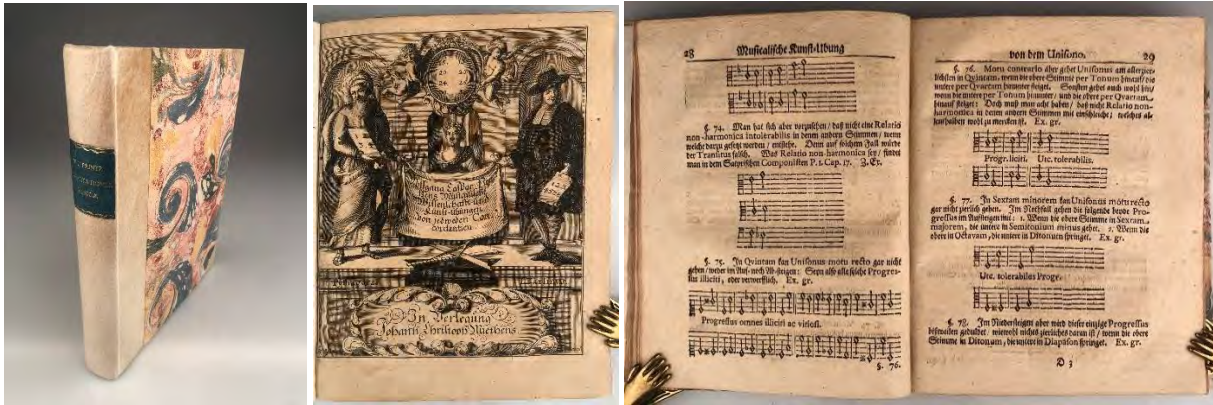 PRINTZ
23.
Wolfgang Caspar
Printzens Musicalische
Wissenschafft und
Kunst-übungen
Von jedweden Con-
cordantien
In Verlegung
Johann Christoph Miethens
28 Musicalische Kunst-Ubung
§. 74. Man hat sich aber vorzusehen / daß nicht eine Relatio
non-harmonica intolerabilis in denen andern Stimmen / wenn
welche darzu gesetzt werden / entstehe. Denn auf solchen Fall würde
der Transitus falsch. Was Relatio non-harmonica sey / findet
man in dem Satyrischen Componisten P. 1. Cap. 17. Z. Ex.
§. 75. In Qvintam kan Unisonus motu recto gar nicht
gehen / weder im Auf- noch Ab-steigen: Seyn also alle solche Progres-
sus illiciti, oder verwerfflich. Ex. gr.
Progressus omnes illiciti ac vitiosi.
§. 76.
von dem Unisono. 29
§. 76. Motu contrario aber gehet Unisonus am allerzier-
lichsten in Qvintam, wenn die obere Stimme per Tonum hinauf / die
untere per Qvartam herunter steiget. Sonsten gehet auch wohl hin /
wenn die untere per Tonum herunter / und die obere per Qvartam
hinauf steiget: Doch muß man acht haben / daß nicht Relatio non-
harmonica in denen andern Stimmen mit einschleiche; welches al-
lenthalben wohl zu mercken ist. Ex. gr.
Progr. liciti. Utc. tolerabilis.
§. 77. In Sextam minorem kan Unisonus motu recto
gar nicht zierlich gehen. Im Nothfall gehen die folgende beyde Pro-
gressus im Auffsteigen mit: 1. Wenn die obere Stimme in Sextam
majorem, die untere in Semitonium minus gehet. 2. Wenn die
obere in Octavam, die untere in Ditonum springet. Ex. gr.
Utc. tolerabiles Progr.
§. 78. Im Niedersteigen aber wird dieser eintzige Progressus
bisweilen geduldet / wiewohl nichts zierliches daran ist / wenn die obere
Stimme in Ditonum, die untere in Diapason springet. Ex. gr.
D 3